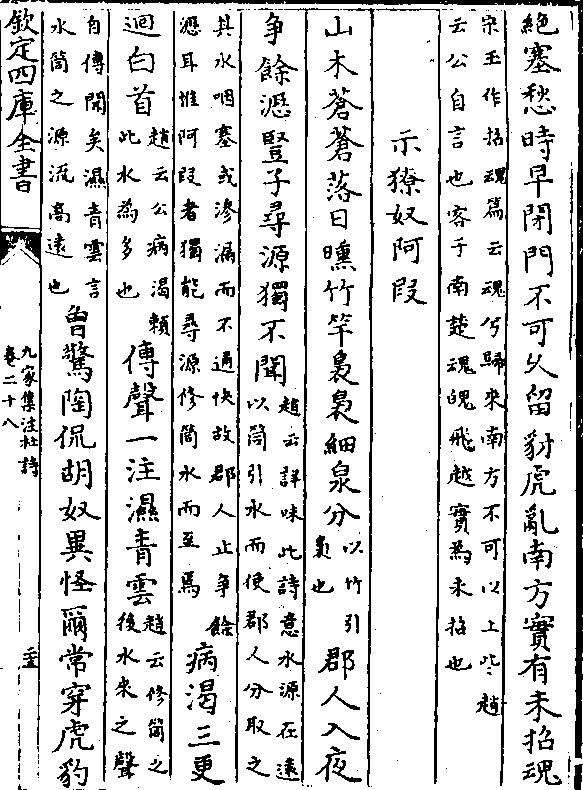 絶塞愁時早閉門不可乆留豺虎亂南方實有未招魂
宋玉作招魂篇云魂兮歸來南方不可以上些趙
云公自言也客于南楚魂魄飛越實為未招也
示獠奴阿段
山木蒼蒼落日曛竹竿裊裊細泉分以竹引泉也郡人入夜
争餘瀝豎子尋源獨不聞趙云詳味此詩意水源在遠以筒引水而使郡人分取之
其水咽塞或滲漏而不通快故郡人止争餘瀝耳惟阿段者獨能尋源修筒水而至焉病渴三更
迴白首趙云公病渴頼此水為多也傳聲一注濕青雲趙云修筒之後水來之聲
自傳聞矣濕青雲言水筒之源流高遠也曾驚陶侃胡奴異怪爾常穿虎豹
欽定四庫全書
九家集注杜詩
卷二十八